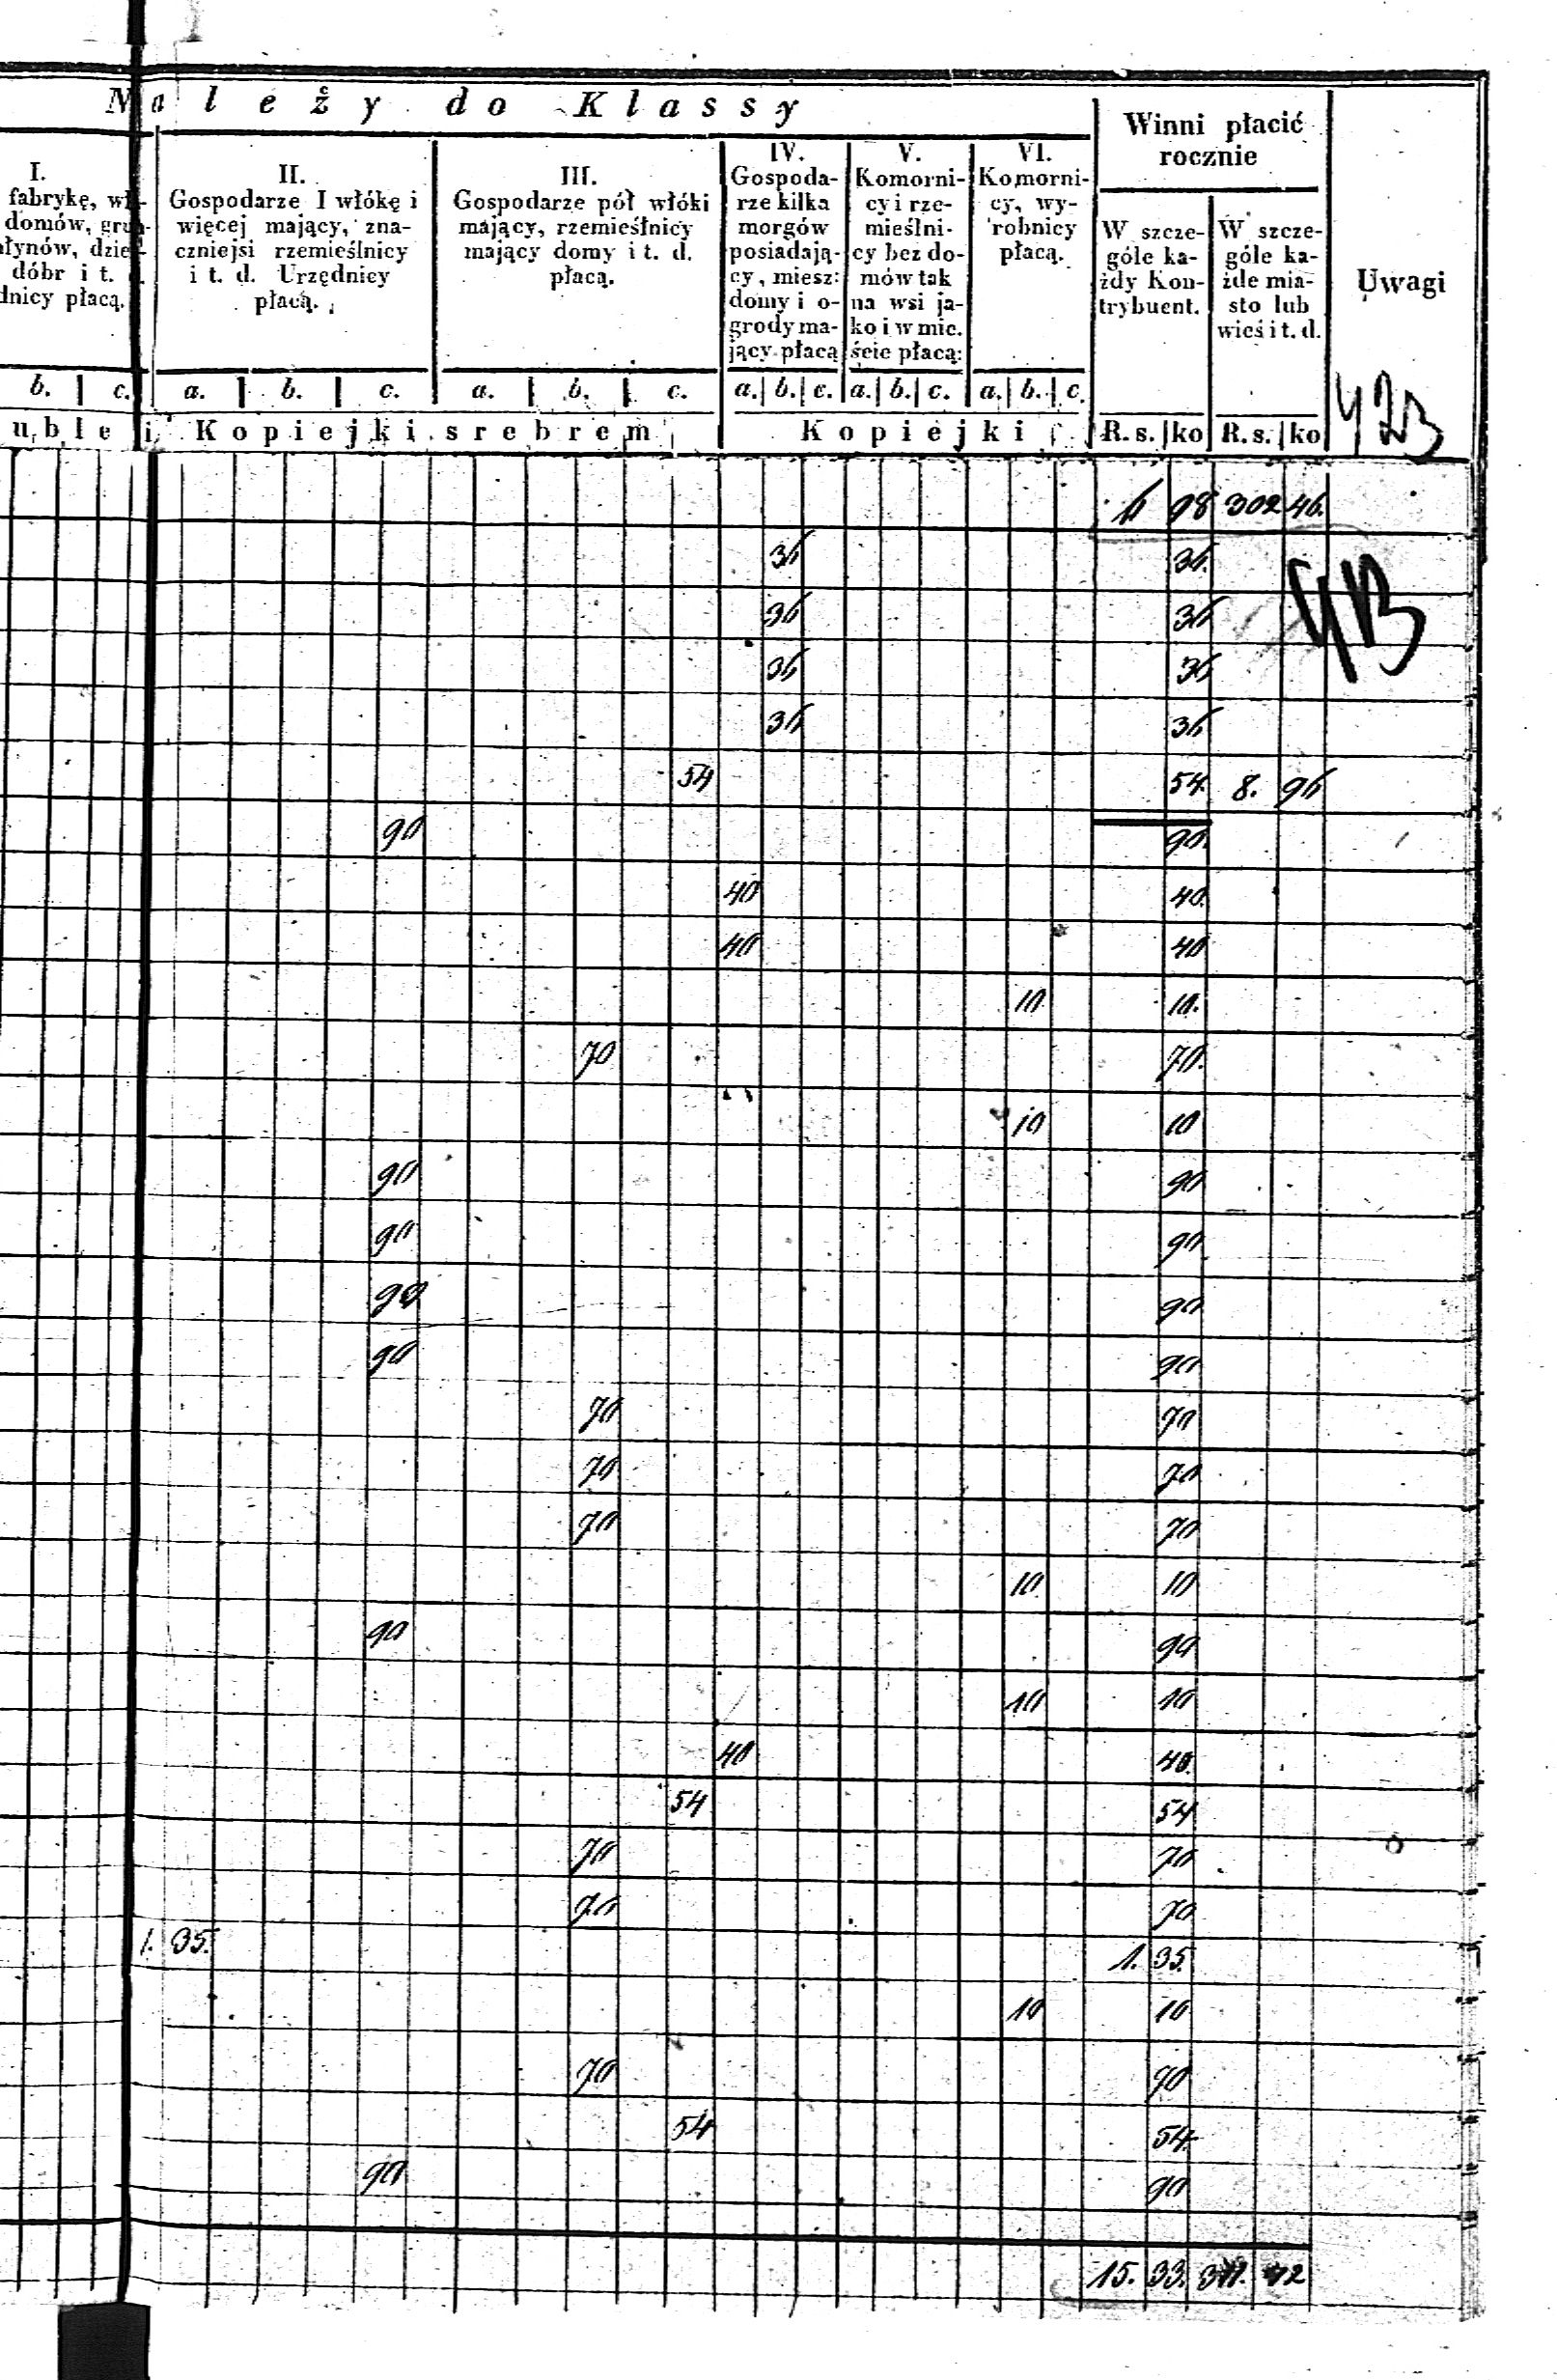 Należy do Klassy
I.
fabrykę, wł-
domów, grun-
łynów, dzier-
dóbr i t. d.
dnicy płacą.
II.
Gospodarze I włókę i
więcej mający, zna-
czniejsi rzemieślnicy
i t. d. Urzędnicy
płacą.
III.
Gospodarze pół włóki
mający, rzemieślnicy
mający domy i t. d.
płacą.
IV.
Gospoda-
rze kilka
morgów
posiadają-
cy, miesz:
domy i o-
grody ma-
jący płacą
V.
Komorni-
cy i rze-
mieślni-
cy bez do-
mów tak
na wsi ja-
ko i w mie.
ście płacą:
VI.
Komorni-
cy, wy-
robnicy
płacą.
Winni płacić
rocznie
W szcze-
góle ka-
żdy Kon-
trybuent.
W szcze-
góle ka-
żde mia-
sto lub
wieś i t. d.
Uwagi
b. c. a. b. c. a. b. c. a. b. c. a. b. c. a. b. c.
uble i Kopiejki srebrem Kopiejki R. s. ko R. s. ko
423
6 98 302 46.
36 36.
413
36 36
36 36
36 36
54 54. 8. 96
90 90.
40 40.
40 40
10 10.
70 70.
10 10
90 90
90 90
90 90
90 90
70 70
70 70
70 70
10 10
90 90
10 10
40 40.
54 54
70 70
70 70
1. 35. 1. 35.
10 10
70 70
54 54
90 90
15. 33. 311. 42